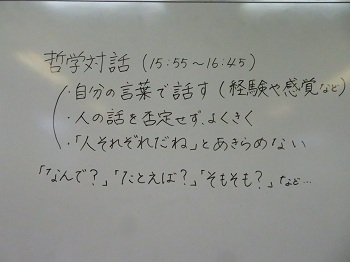 哲学対話 (15:55～16:45)
・自分の言葉で話す (経験や感覚など)
・人の話を否定せず、よくきく
・「人それぞれだね」とあきらめない
「なんで?」「たとえば?」「そもそも?」など…